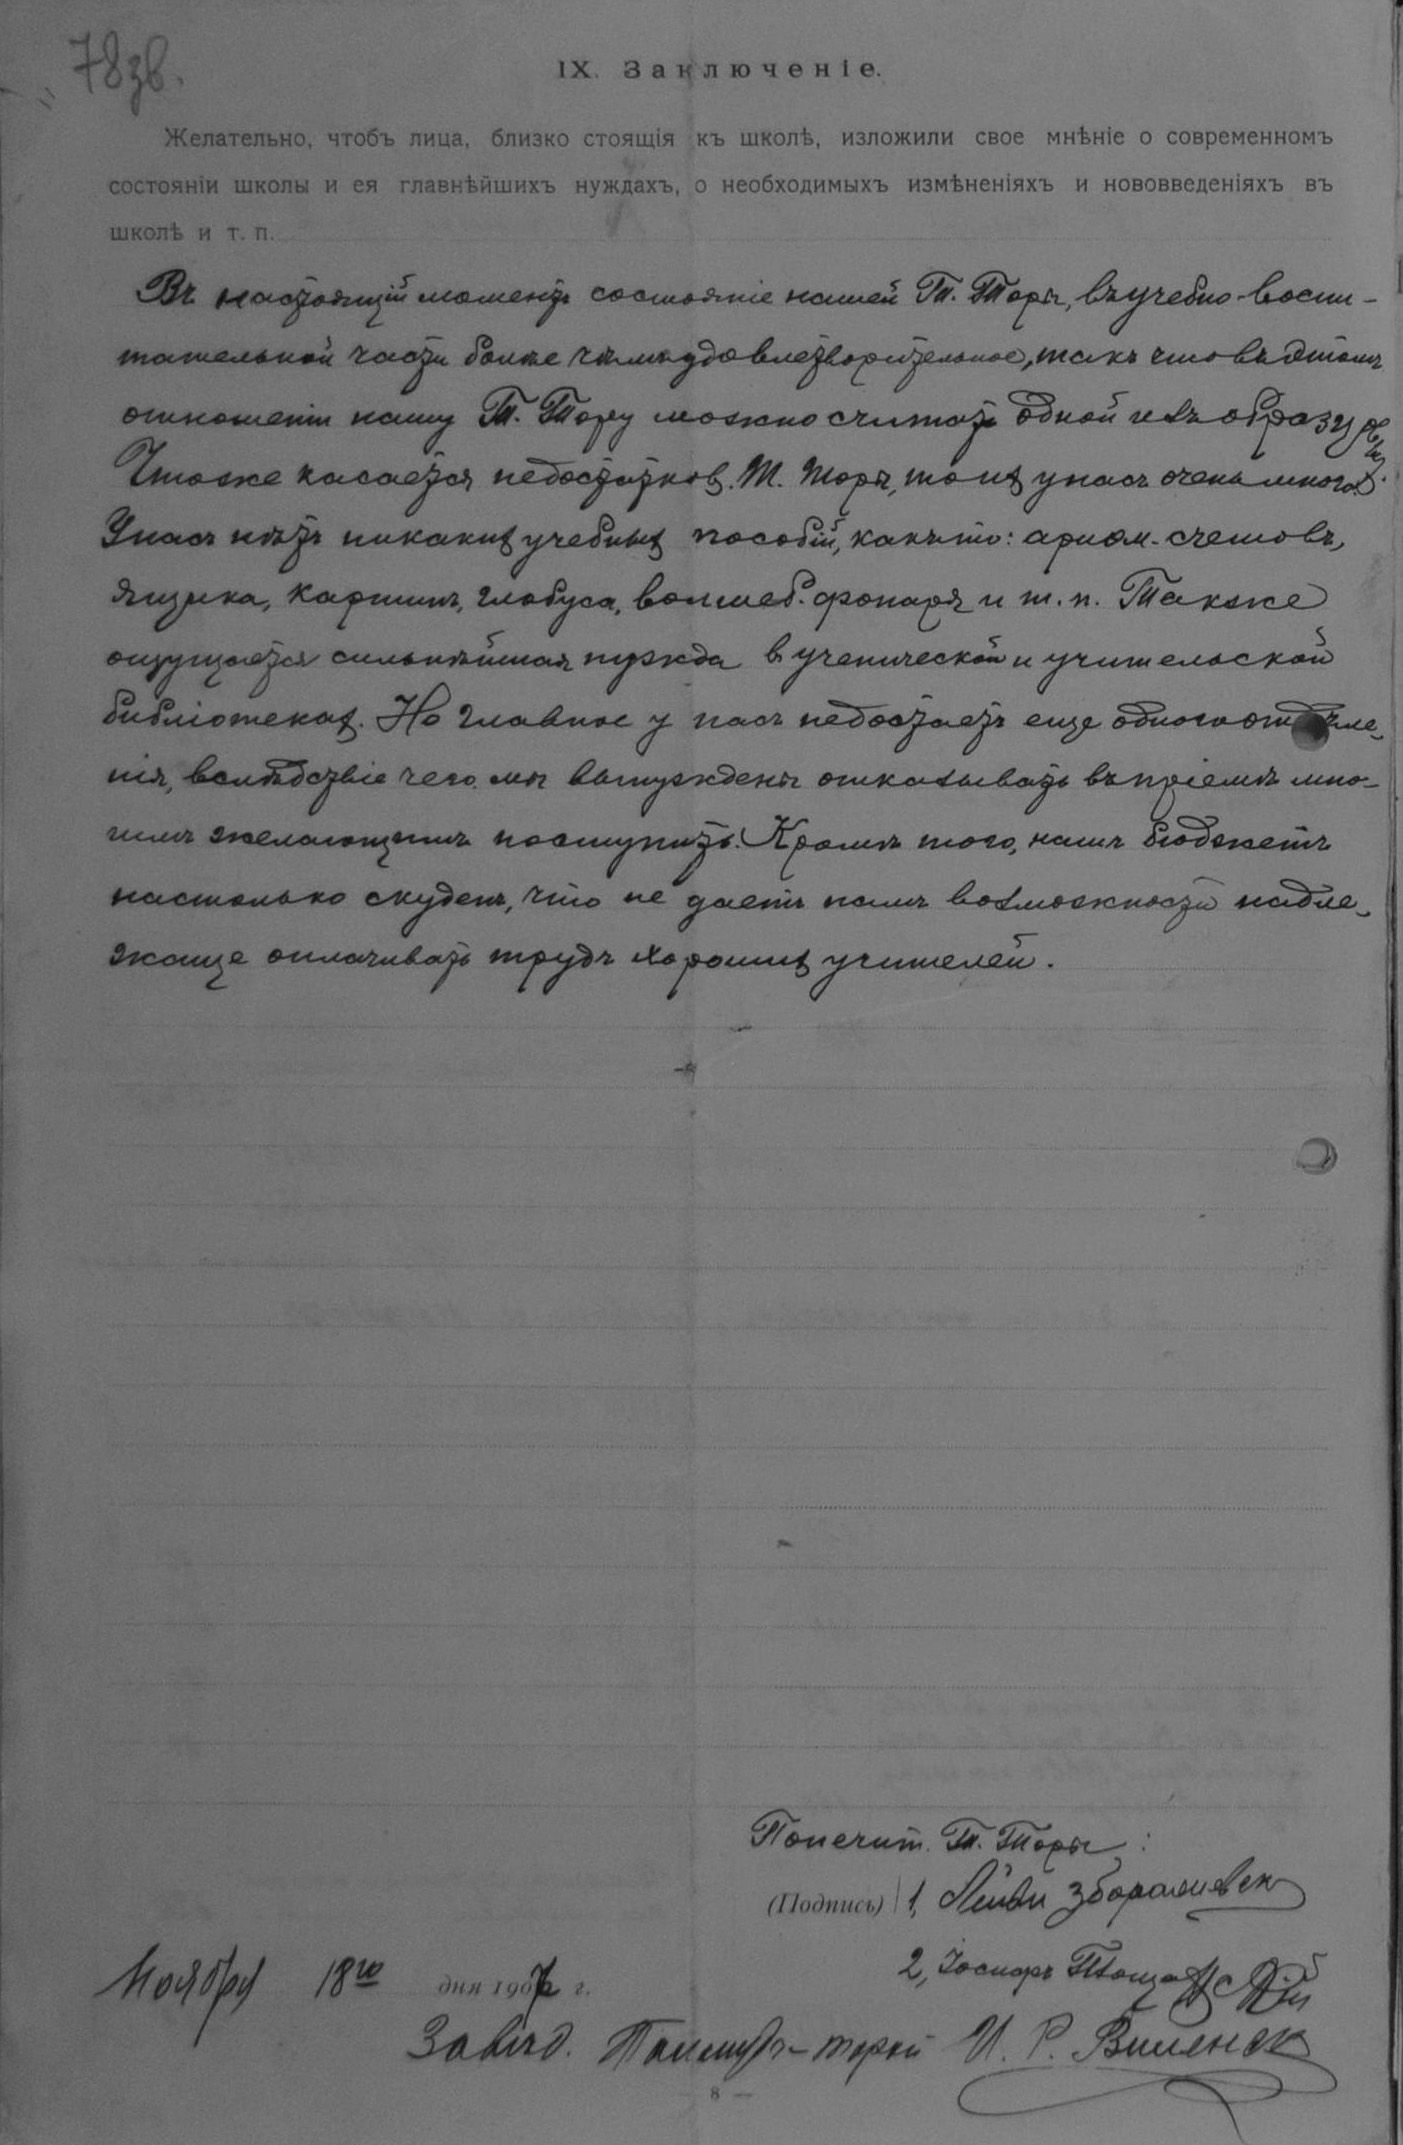 78зв.
IX. Заключеніе.
Желательно, чтобъ лица, близко стоящія къ школѣ, изложили свое мнѣніе о современномъ
состояніи школы и ея главнѣйшихъ нуждахъ, о необходимыхъ измѣненіяхъ и нововведеніяхъ въ
школѣ и т. п.
Въ настоящій моментъ состояніе нашей Т. Торы, въ учебно-воспи-
тательной части болѣе чѣмъ удовлетворительное, такъ что въ этомъ
отношеніи нашу Т. Тору можно считать одной изъ образцовыхъ.
Что же касается недостатков. Т. Торы, то их у насъ очень много.
У насъ нѣтъ никаких учебных пособій, какъ то: ариѳм. счетовъ,
ящика, картинъ, глобуса, волшеб. фонаря и т. п. Также
ощущается сильнѣйшая нужда в ученической и учительской
библіотеках. Но главное у насъ недостаетъ еще одного отдѣле-
нія, вслѣдствіе чего мы вынуждены отказывать въ пріемѣ мно-
гимъ желающимъ поступить. Кромѣ того, нашъ бюджетъ
настолько скуденъ, что не даетъ намъ возможности надле-
жаще оплачивать трудъ хороших учителей.
Попечит. Т. Торы:
(Подпись) 1,
2, Іосифъ
Ноября 18го дня 1907 г.
Завѣд. Талмудъ-торой И. Р. Виленск
8 —